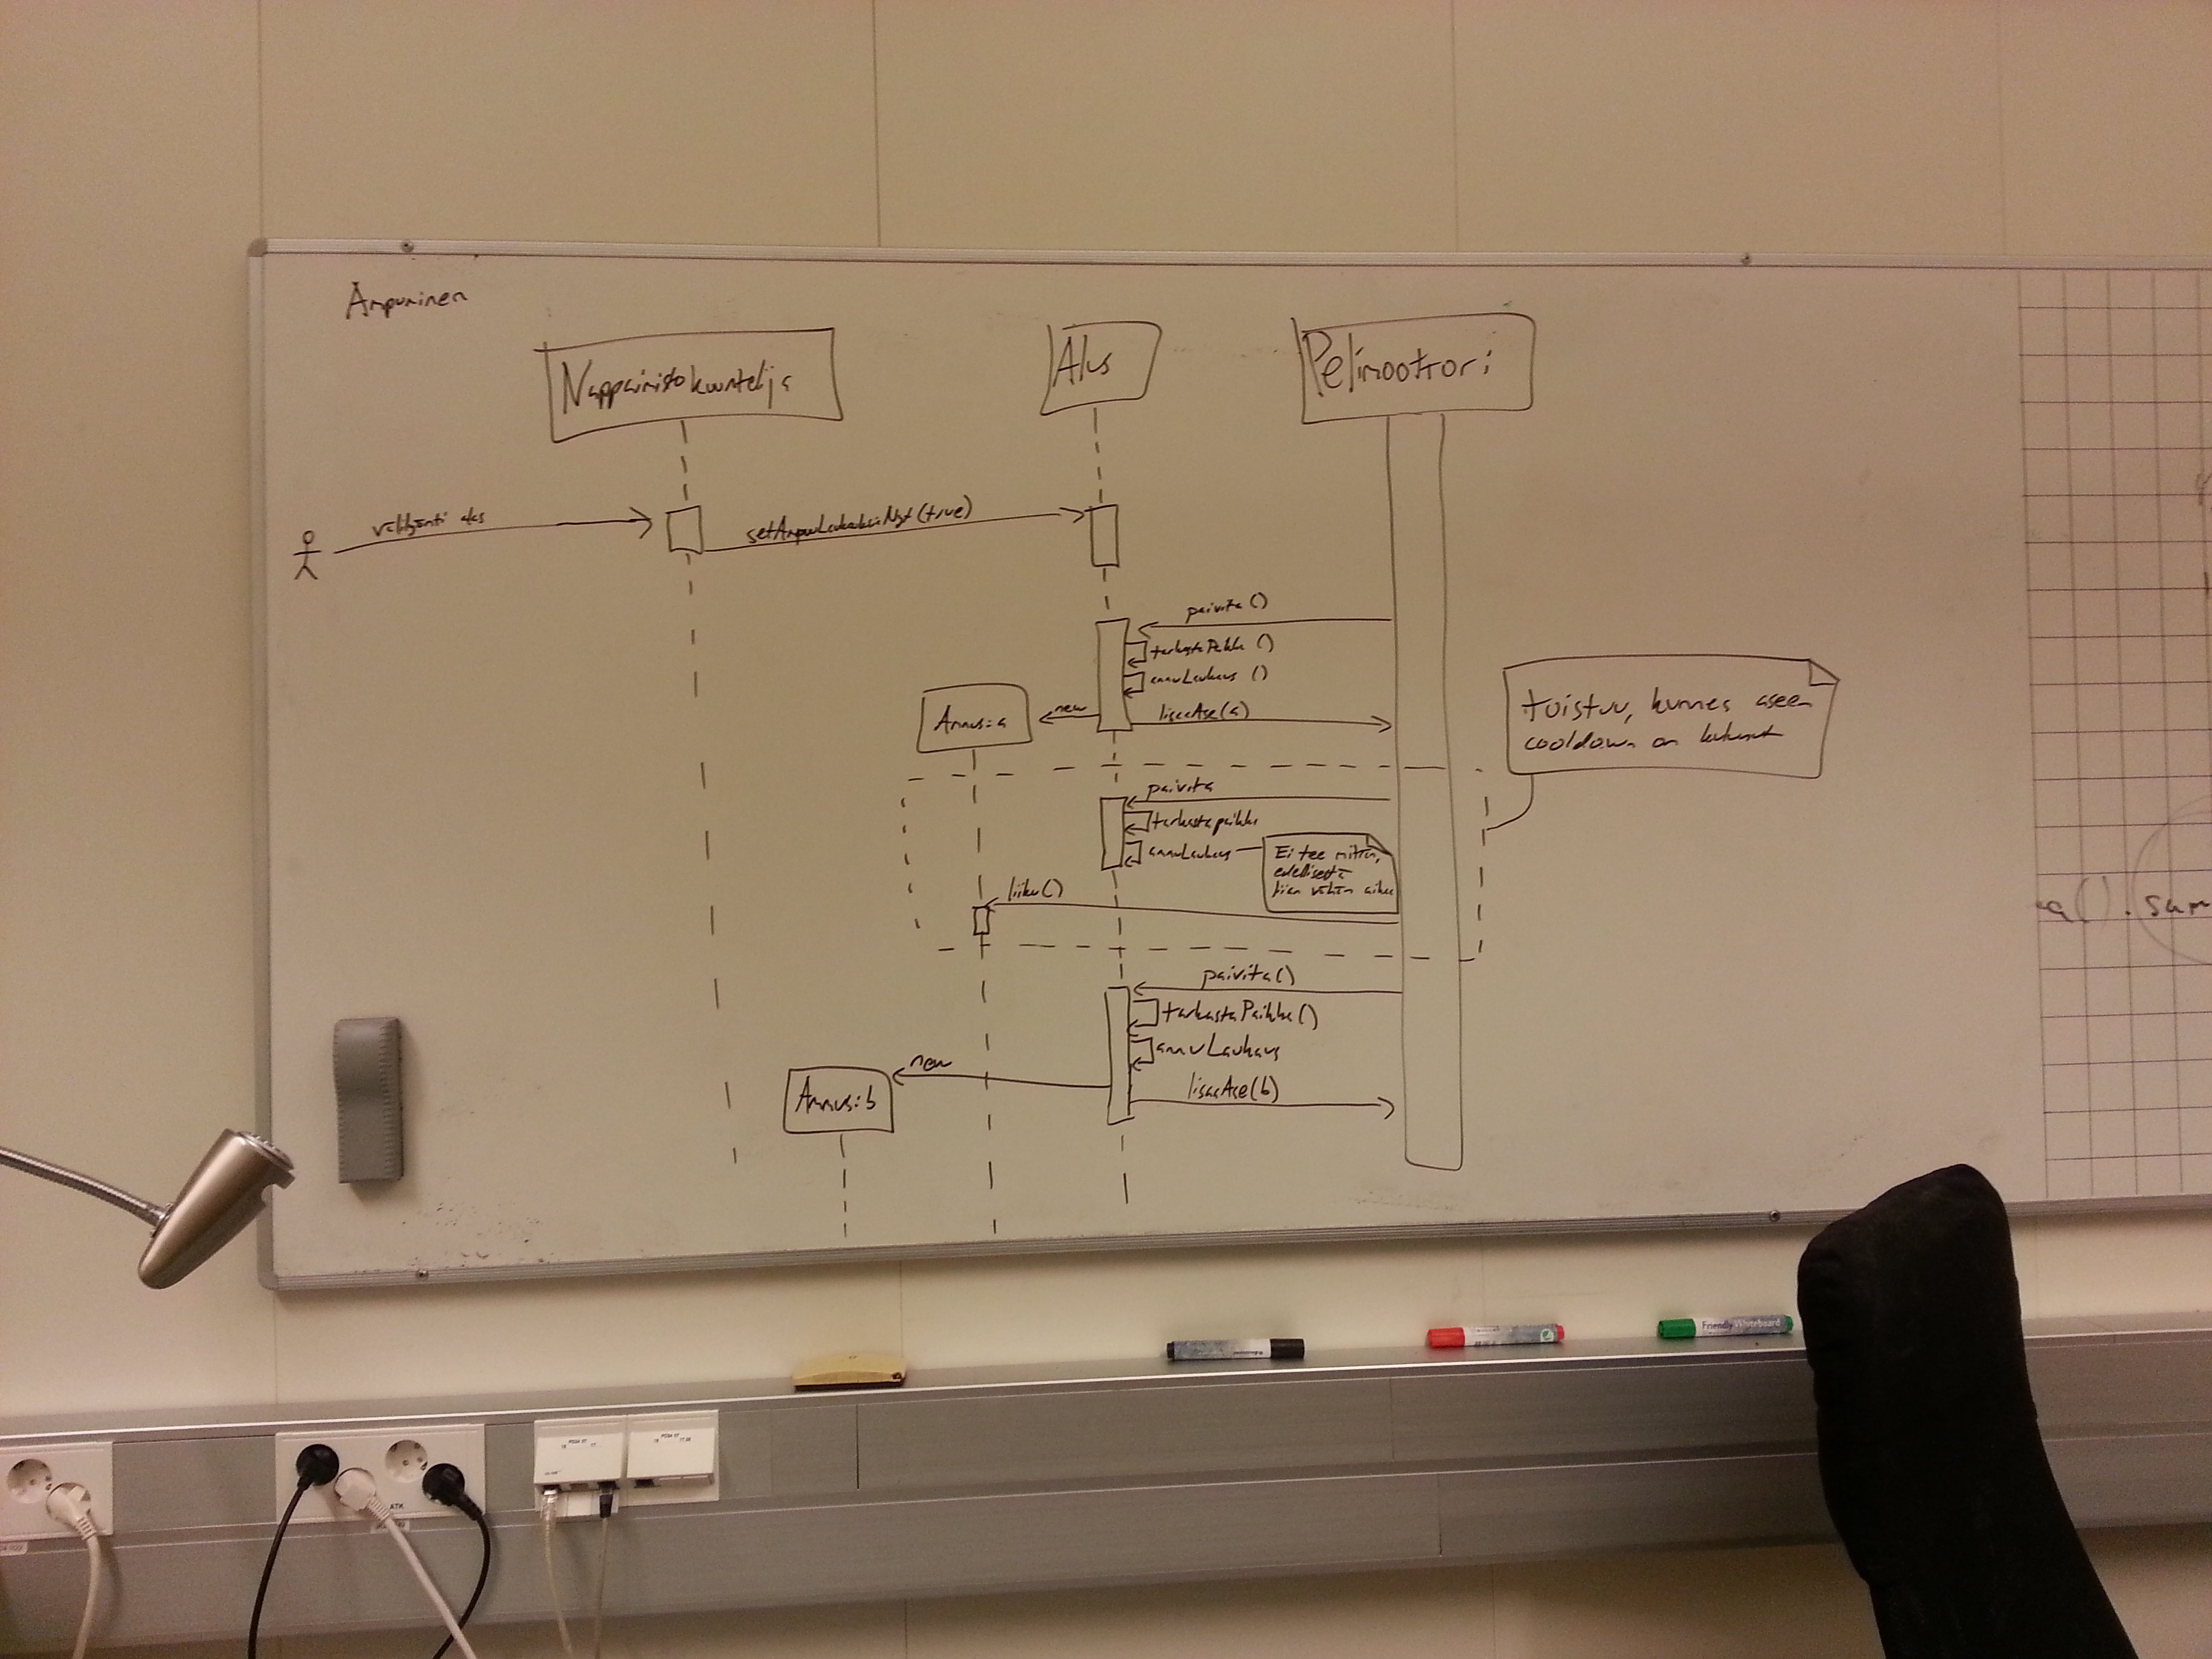 Ampuminen
Nappaimistokuuntelija
Alus
Pelimoottori
välilyönti alas
setAmpuuLaukauksiaNyt(true)
paivita()
tarkastaPaikka()
ammuLaukaus()
new
lisaaAse(a)
Ammus:a
toistuu, kunnes aseen
cooldown on kulunut
paivita
tarkastapaikka
ammuLaukaus
Ei tee mitään,
edellisestä
liian vähän aikaa
liiku()
paivita()
tarkastaPaikka()
ammuLaukaus
new
lisaaAse(b)
Ammus:b
a().sum
Friendly Whiteboard
ATK